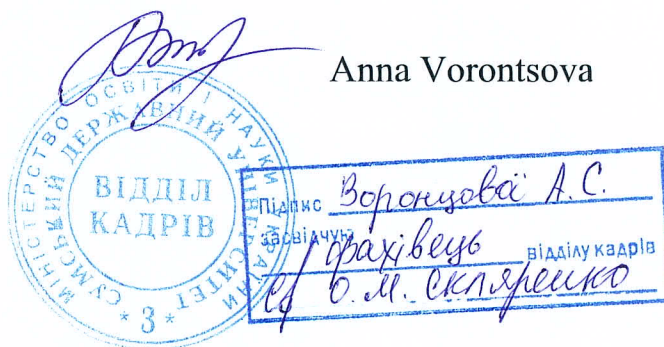 Anna Vorontsova
МІНІСТЕРСТВО ОСВІТИ І НАУКИ УКРАЇНИ
СУМСЬКИЙ ДЕРЖАВНИЙ УНІВЕРСИТЕТ
ВІДДІЛ
КАДРІВ
* 3 *
Підпис Воронцової А.С.
засвідчую
фахівець відділу кадрів
О.М. Скляренко